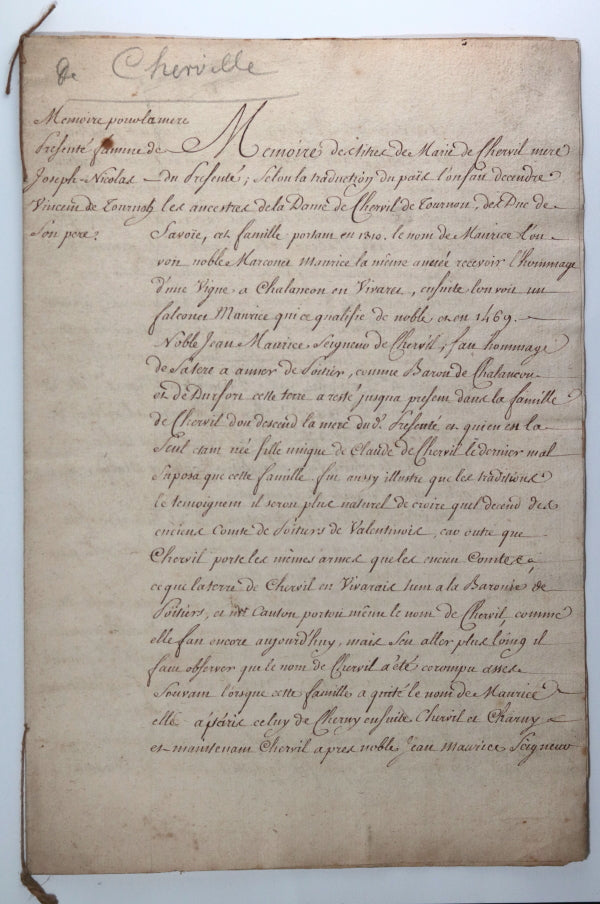 De Cherville
Memoire pour la mere
Presenté famme de
Joseph-Nicolas
Vincent de Tournon
son pere.
Memoire des titres de Marie de Chervil mere
du Presenté; Selon la traduction du païs l'on fait decendre
les ancestres de la Dame de Chervil de Tournon, des Duc de
Savoie, cet famille portant en 1310. le nom de Maurice l'on
voit noble Marconet Maurice la même année recevoir l'hommage
d'une Vigne a Chalancon en Vivaret, ensuite l'on voit un
falconet Maurice qui ce qualifie de noble et en 1469.
Noble Jean Maurice Seigneur de Chervil, fait hommage
de Sa terre a aimer de Poitier, comme Baron de Chalancon
et de Durfort cette terre a resté jusqua present dans la famille
de Chervil dou descend la mere dud. Presenté et qui en est la
Seul etant née fille unique de Claude de Chervil le dernier mal
Suposa que cette famille fut aussy illustre que les traditions
le temoignent il seroit plus naturel de croire quel decend des
enciens Comte de Poitiers de Valentinois, car outre que
Chervil porte les mêmes armes que les encien Comtes
ce que la terre de Chervil en Vivarais tient a la Baronie de
Poitiers, et un Canton portoit même le nom de Chervil comme
elle fait encore aujourd'huy, mais sen aller plus loing il
faut observer que le nom de Chervil a été corompu asses
Souvant lorsque cette famille a quité le nom de Maurice
elle a pris celuy de Cherny ensuite Chervil et Charny
et maintenant Chervil apres noble Jean Maurice Seigneur